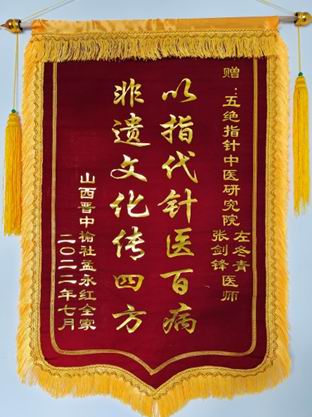 赠：五绝指针中医研究院
左冬青
张剑锋 医师
以指代针医百病
非遗文化传四方
山西晋中榆社孟永红全家
二〇二二年七月